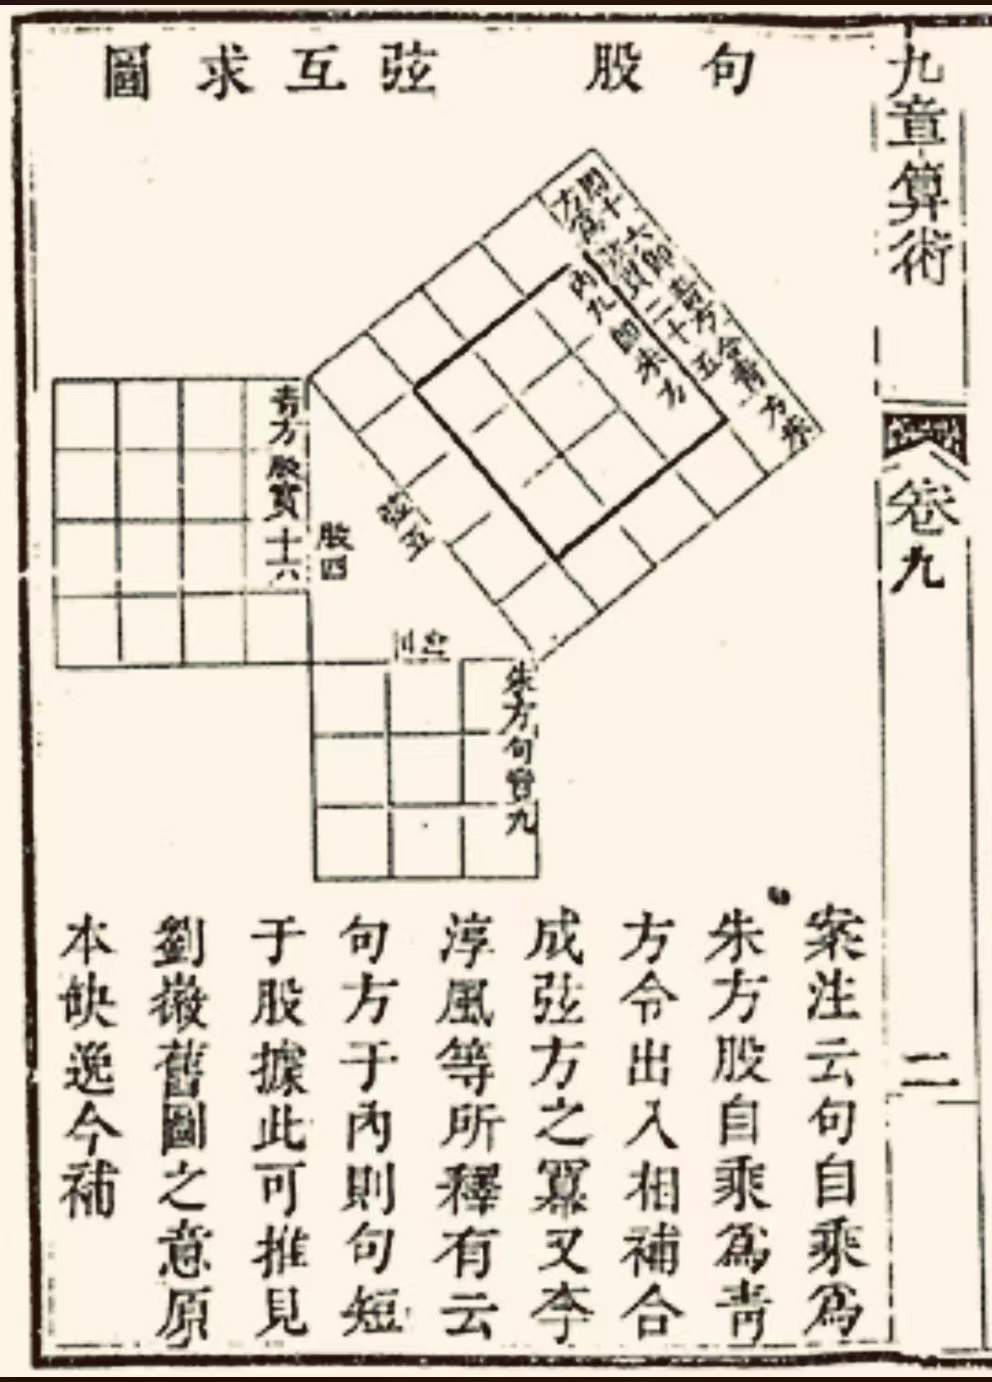 九章算術
卷九
二
句股
弦互求圖
青方股實十六
股四
弦五
句三
朱方句實九
內九即朱方
案注云句自乘爲
朱方股自乘爲青
方令出入相補合
成弦方之冪又李
淳風等所釋有云
句方于內則句短
于股據此可推見
劉徽舊圖之意原
本缺逸今補